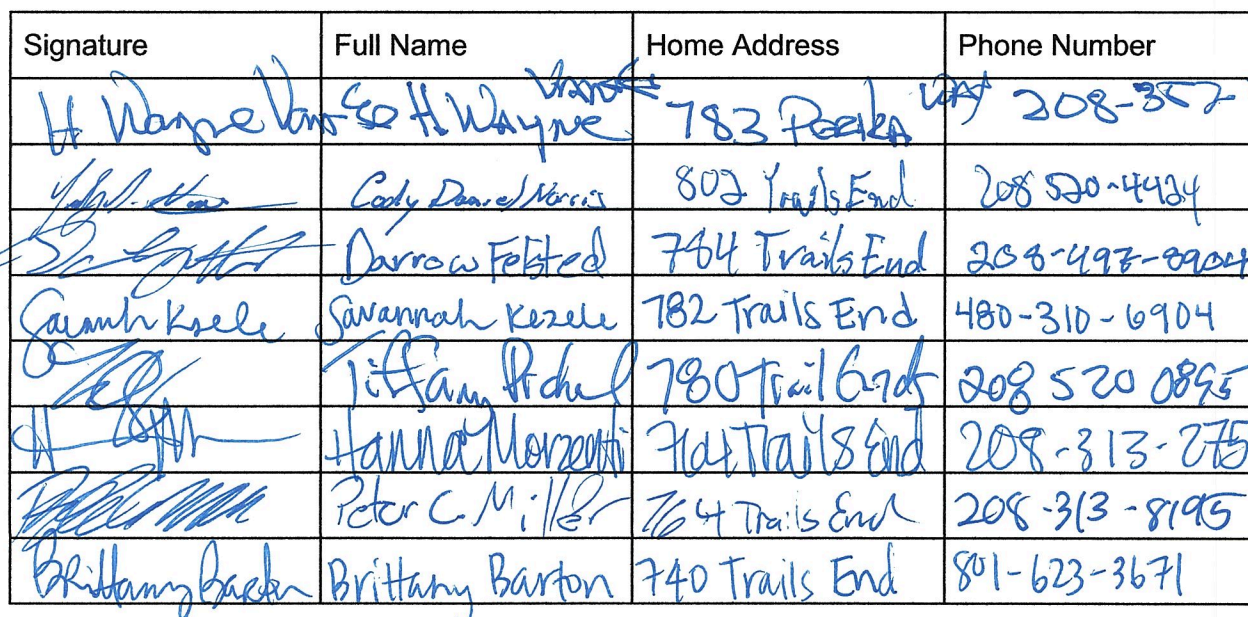 Signature Full Name Home Address Phone Number
H Wayne H Wayne 783 208-357
Cody Daniel Norris 802 Trails End 208 520-4424
Darrow Felsted 784 Trails End 208-497-8904
Savannah Kezele 782 Trails End 480-310-6904
Tiffany Pichel 780 208 520 0895
Hanna Morzenti Trails End 208-313-275
Peter C. Miller 764 Trails End 208-313-8195
Brittany Barton Brittany Barton 740 Trails End 801-623-3671